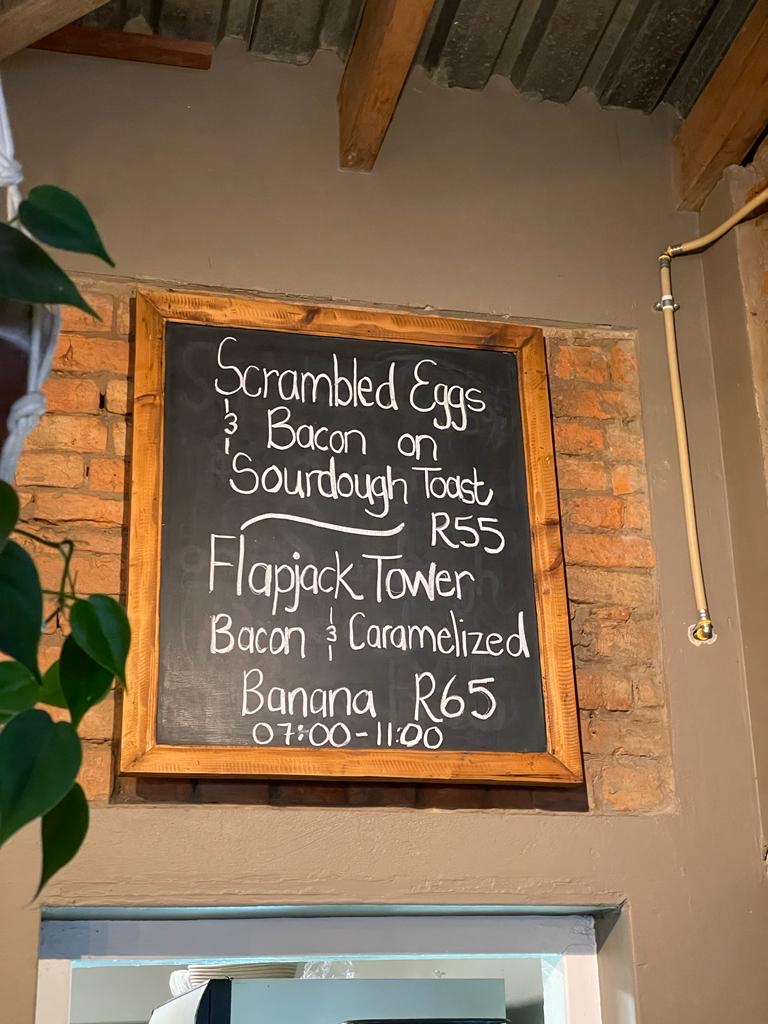 Scrambled Eggs
& Bacon on
Sourdough Toast
R55
Flapjack Tower
Bacon & Caramelized
Banana R65
07:00-11:00